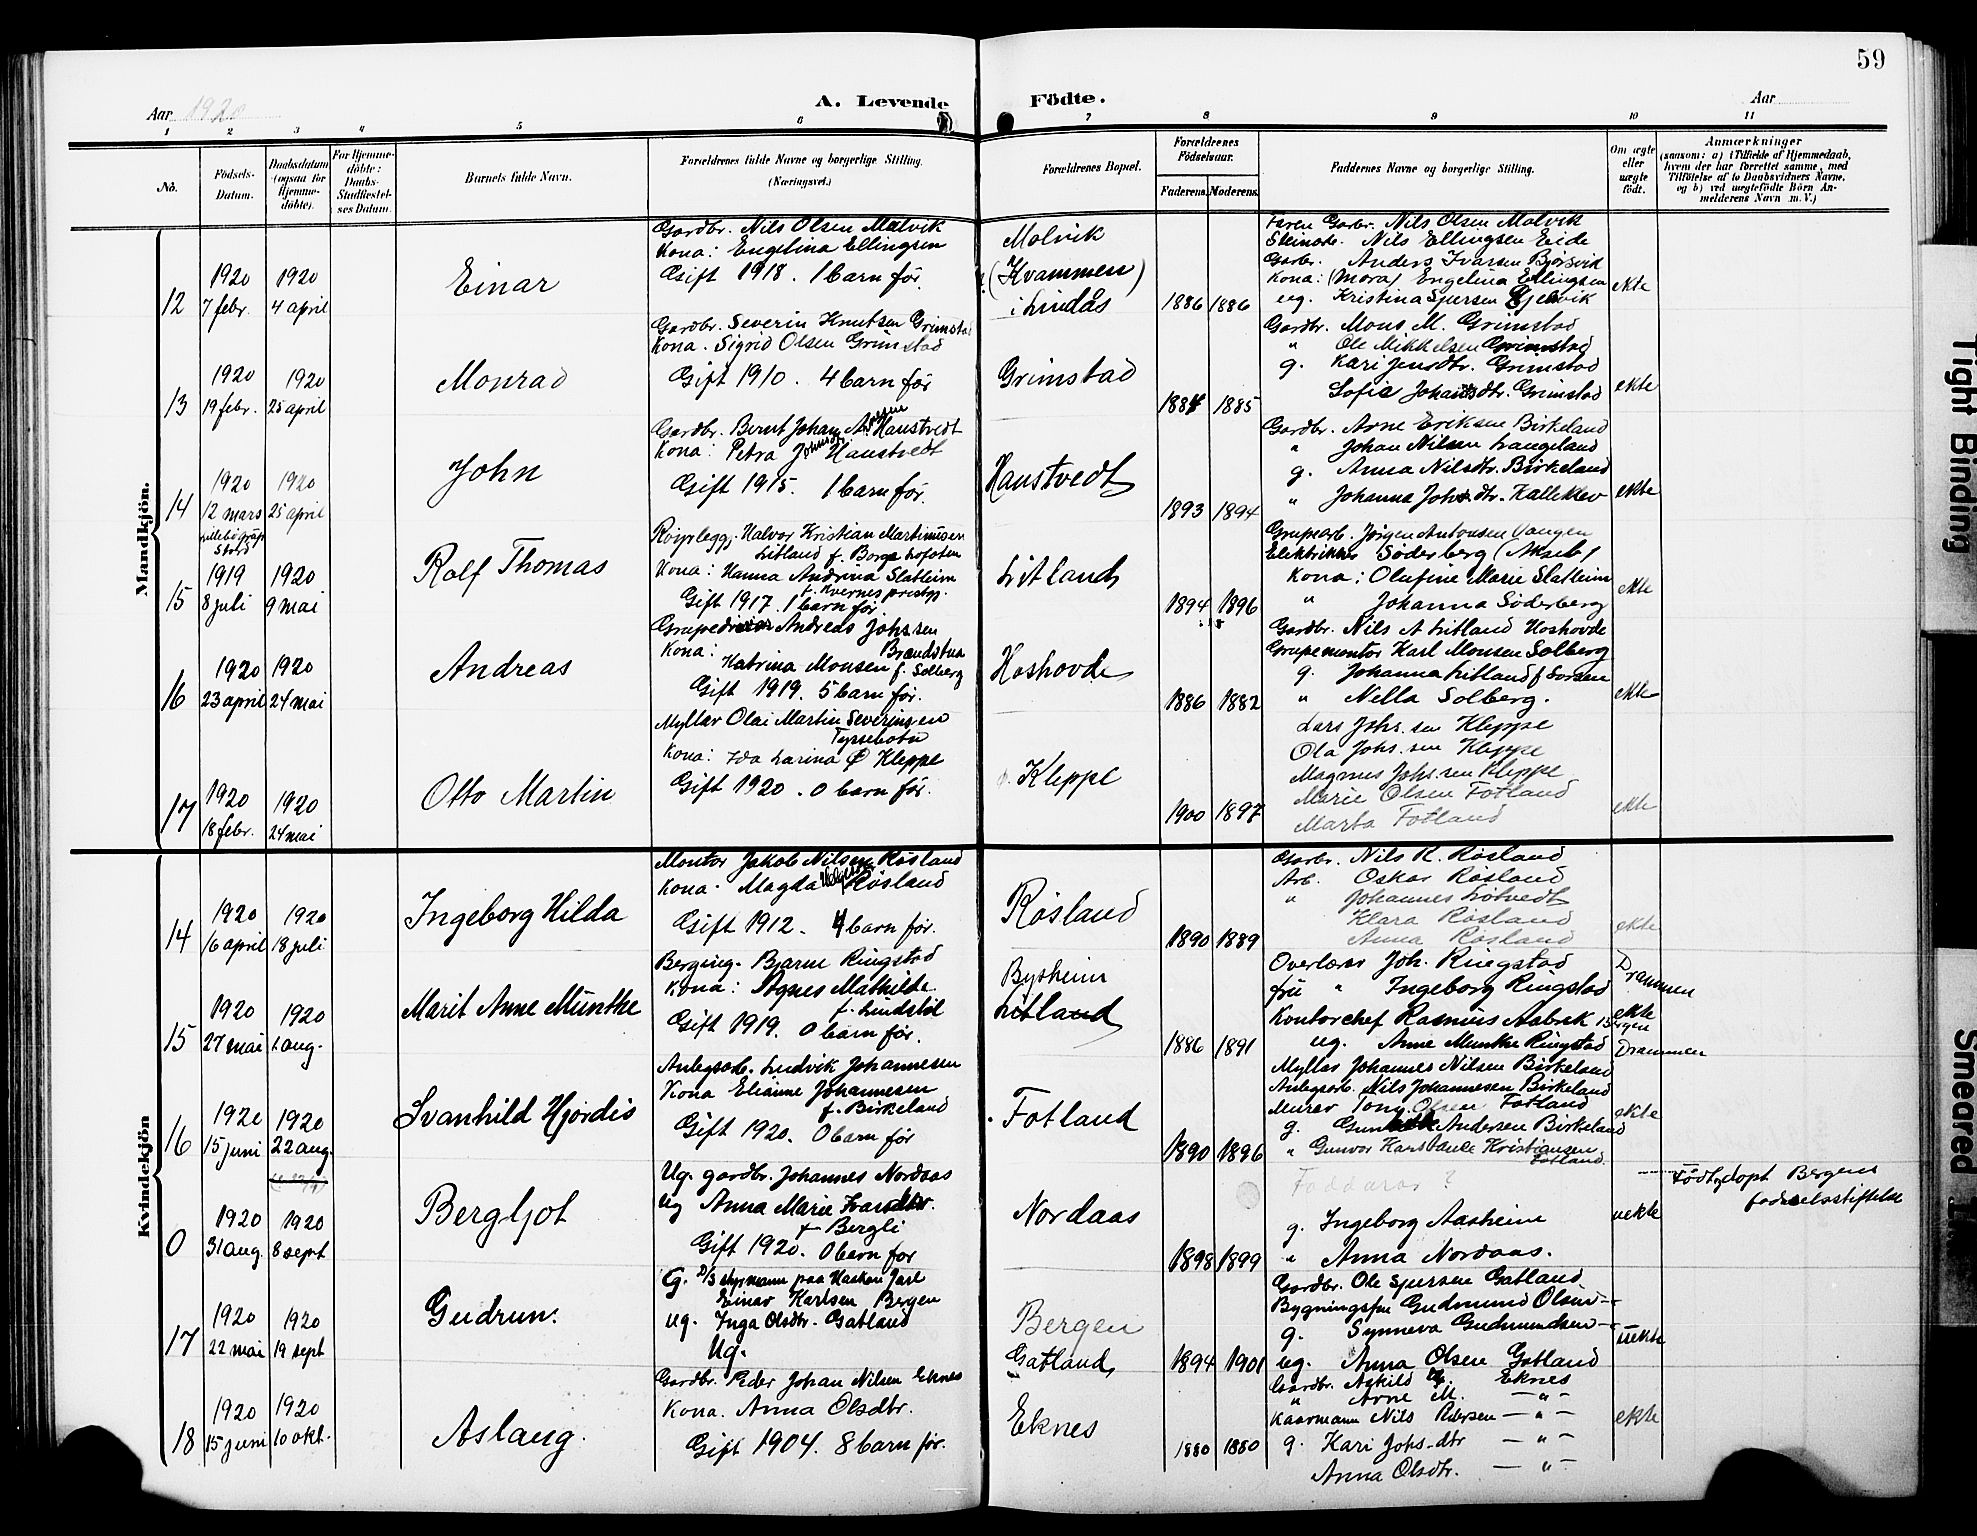 59
Aar 1920
A. Levende Födte.
Aar
1 2 3 4 5 6 7 8 9 10 11
No.
Födsels-Datum.
Daabsdatum (ogsaa for Hjemme-döbte).
For Hjemme-döbte: Daabs-Stadfæstel-ses Datum.
Barnets fulde Navn.
Forældrenes fulde Navne og borgerlige Stilling. (Næringsvei.)
Forældrenes Bopæl.
Forældrenes Födselsaar.
Faderens. Moderens.
Faddernes Navne og borgerlige Stilling.
Om ægte eller uægte födt.
Anmærkninger
(saasom: a) i Tilfælde af Hjemmedaab,
hvem der har forrettet samme, med
Tilföielse af to Daabsvidners Navne,
og b) ved uægtefödte Börn An-
melderens Navn m. V.)
Mandkjön.
12
1920 7 febr.
1920 4 april
Einar
Gardbr. Nils Olsen Malvik
Kona: Engelina Ellingsen
Gift 1918. 1 barn før.
Molvik
(Kvammen)
i Lindås
1886 1886
Faren Garbr. Nils Olsen Molvik
Nils Ellingsen Eide
Garbr. Anders Ivarsen Bjørsvik
Kona: (Mora) Engelina Ellingsen
ug. Kristina Sjursen
ekte
13
1920 19 febr.
1920 25 april
Monrad
Gardbr. Severin Knutsen Grimstad
Kona. Sigrid Olsen Grimstad
Gift 1910. 4 barn før
Grimstad
1884 1885
Gardbr. Mons M. Grimstad
" Ole Mikkelsen Grimstad
g. Kari Jensdtr. Grimstad
Sofie Johansdtr. Grimstad
ekte
14
1920 12 mars
1920 25 april
John
Gardbr. Bernt Johan Haustvedt
Kona: Petra Haustvedt
Gift 1915. 1 barn før.
Haustvedt
1893 1894
Gardbr. Arne Eriksen Birkeland
" Johan Nilsen Langeland
g. Anna Nilsdtr. Birkeland
" Johanna Johsdtr. Kalleklev
ekte
15
Stord
1919 8 juli
1920 9 mai
Rolf Thomas
Rørlegg. Halvor Kristian Martinusen
Litland f. Borge Lofoten
Kona: Hanna Andrina Slatleim
f. Kvernes prestgj.
Gift 1917. 1 barn før
Litland
1894 1896
Grupearb. Jørgen Antonsen Vangen
Elektriker Søderberg (Akseb)
Kona: Olufine Marie Slatleim
" Johanna Søderberg
ekte
16
1920 23 april
1920 24 mai
Andreas
Andreas Johssen
Brandstua
Kona: Katrina Monsen f. Solberg
Gift 1919. 5 barn før.
Hoshovde
1886 1882
Gardbr. Nils A Litland Hoshovde
Grupemontør Karl Monsen Solberg
g. Johanna Litland f Sørsen
" Nella Solberg.
ekte
17
1920 18 febr.
1920 24 mai
Otto Martin
Myllar Olai Martin Severinsen
Tyssebotn
Kona: Ida Larina Kleppe
Gift 1920. 0 barn før.
Kleppe
1900 1897
Lars Johs.sen Kleppe
Ola Johs.sen Kleppe
Magnus Johs.sen Kleppe
Marie Olsen Fotland
Marta Fotland
ekte
Kvindekjön
14
1920 16 april
1920 18 juli
Ingeborg Hilda
Montør Jakob Nilsen Røsland
Kona. Magda Røsland
Gift 1912. 4 barn før.
Røsland
1890 1889
Garbr. Nils R. Røsland
Arb. Oskar Røsland
" Johannes Lotvedt
Klara Røsland
Anna Røsland
ekte
15
1920 27 mai
1920 1 aug.
Marit Anne Munthe
Berging. Bjarne Ringstad
Kona: Agnes Mathilde
f. Lindstøl
Gift 1919. 0 barn før.
Bysheim
Litland
1886 1891
Overlærer Joh. Ringstad Drammen
frü " Ingeborg Ringstad
Kontorchef Rasmus Aabrek Bergen
ug. Anne Munthe Ringstad Drammen
ekte
16
1920 15 juni
1920 22 aug.
Svanhild Hjørdis
Anlegsarb. Ludvik Johannesen
Kona Elianne Johannesen
f. Birkeland
Gift 1920. 0 barn før
Fotland
1890 1896
Myllar Johannes Nilsen Birkeland
Anlegsarb. Nils Johannesen Birkeland
Murer Tony Olsen Fotland
g. Andersen Birkeland
" Gunvor Kristiansen
Fotland
ekte
0
1920 31 aug.
1920 8 sept
Bergljot
Ug. gardbr. Johannes Nordaas
Ug Anna Marie Ivarsdtr.
f Bergli
Gift 1920. 0 barn før
Nordaas
1898 1899
Faddarar?
g. Ingeborg Aasheim
" Anna Nordaas.
uekte
Født, døpt Bergens
fødselsstiftelse
17
1920 22 mai
1920 19 sept
Gudrun.
G. styrmann paa Haakon Jarl
Einar Karlsen Bergen
ug. Inga Olsdtr. Gatland
Ug.
Bergen
Gatland
1894 1901
Gardbr. Ole Sjursen Gatland
Gudmund Olsen —"
g. Synneva Gudmundsen —"
ug. Anna Olsen Gatland
uekte
18
1920 15 juni
1920 10 okt.
Aslaug.
Gardbr. Peder Johan Nilsen Eknes
Kona. Anna Olsdtr.
Gift 1904. 8 barn før.
Eknes
1880 1880
Gardbr. Askild Eknes
" Arne M. —"—
Kaarmann Nils Pedersen —"—
g. Kari Johs.dtr —"—
Anna Olsdtr. —"—
ekte
Tight Binding
Smeared Ink